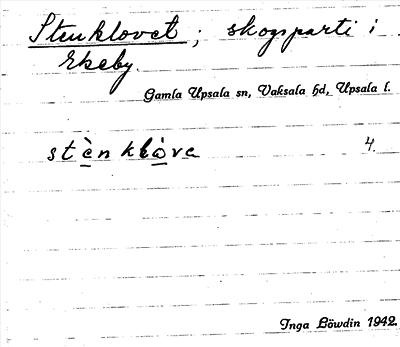 Stenklovet ; skogsparti i
Ekeby.
Gamla Upsala sn, Vaksala hd, Upsala l.
stènklòvɐ 4.
Inga Löwdin 1942.